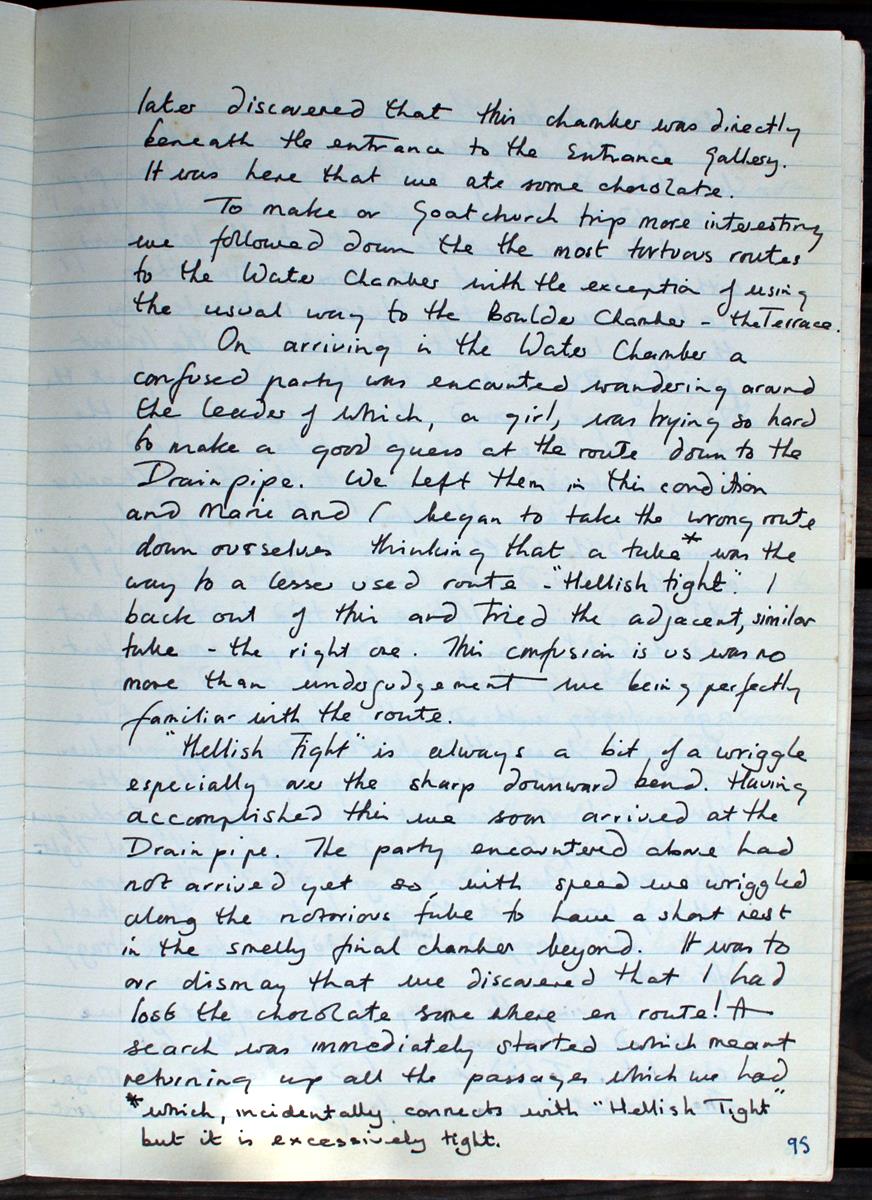 later discovered that this chamber was directly
beneath the entrance to the Entrance Gallery.
It was here that we ate some chocolate.
To make or Goatchurch trip more interesting
we followed down the the most tortuous routes
to the Water Chamber with the exception of using
the usual way to the Boulder Chamber - the Terrace.
On arriving in the Water Chamber a
confused party was encounted wandering around
the leader of which, a girl, was trying so hard
to make a good guess at the route down to the
Drainpipe. We left them in this condition
and Marie and I began to take the wrong route
down ourselves thinking that a tube* was the
way to a lesser used route - "Hellish tight". I
back out of this and tried the adjacent, similar
tube - the right one. This confusion is us was no
more than underjudgement we being perfectly
familiar with the route.
"Hellish Tight" is always a bit of a wriggle
especially over the sharp downward bend. Having
accomplished this we soon arrived at the
Drainpipe. The party encountered above had
not arrived yet so, with speed we wriggled
along the notorious tube to have a short rest
in the smelly final chamber beyond. It was to
our dismay that we discovered that I had
lost the chocolate some where en route! A
search was immediately started which meant
returning up all the passages which we had
*which, incidentally connects with "Hellish Tight"
but it is excessively tight.
95